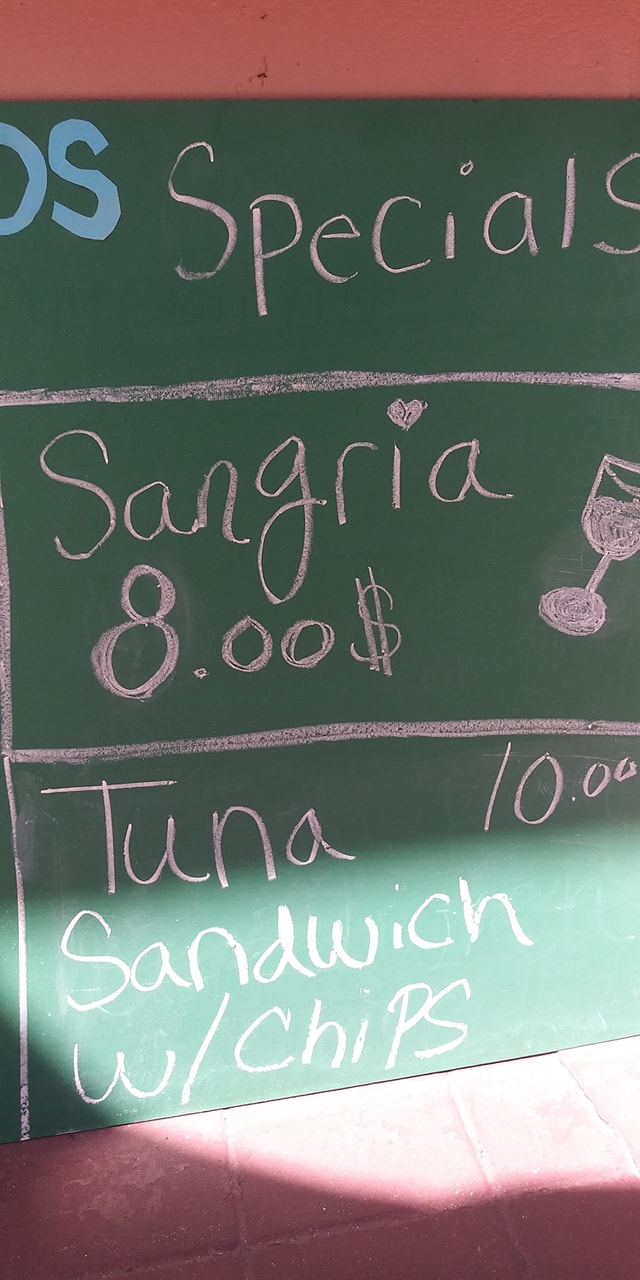 OS Specials
Sangria
8.00$
Tuna 10.00
Sandwich
w/ChiPS